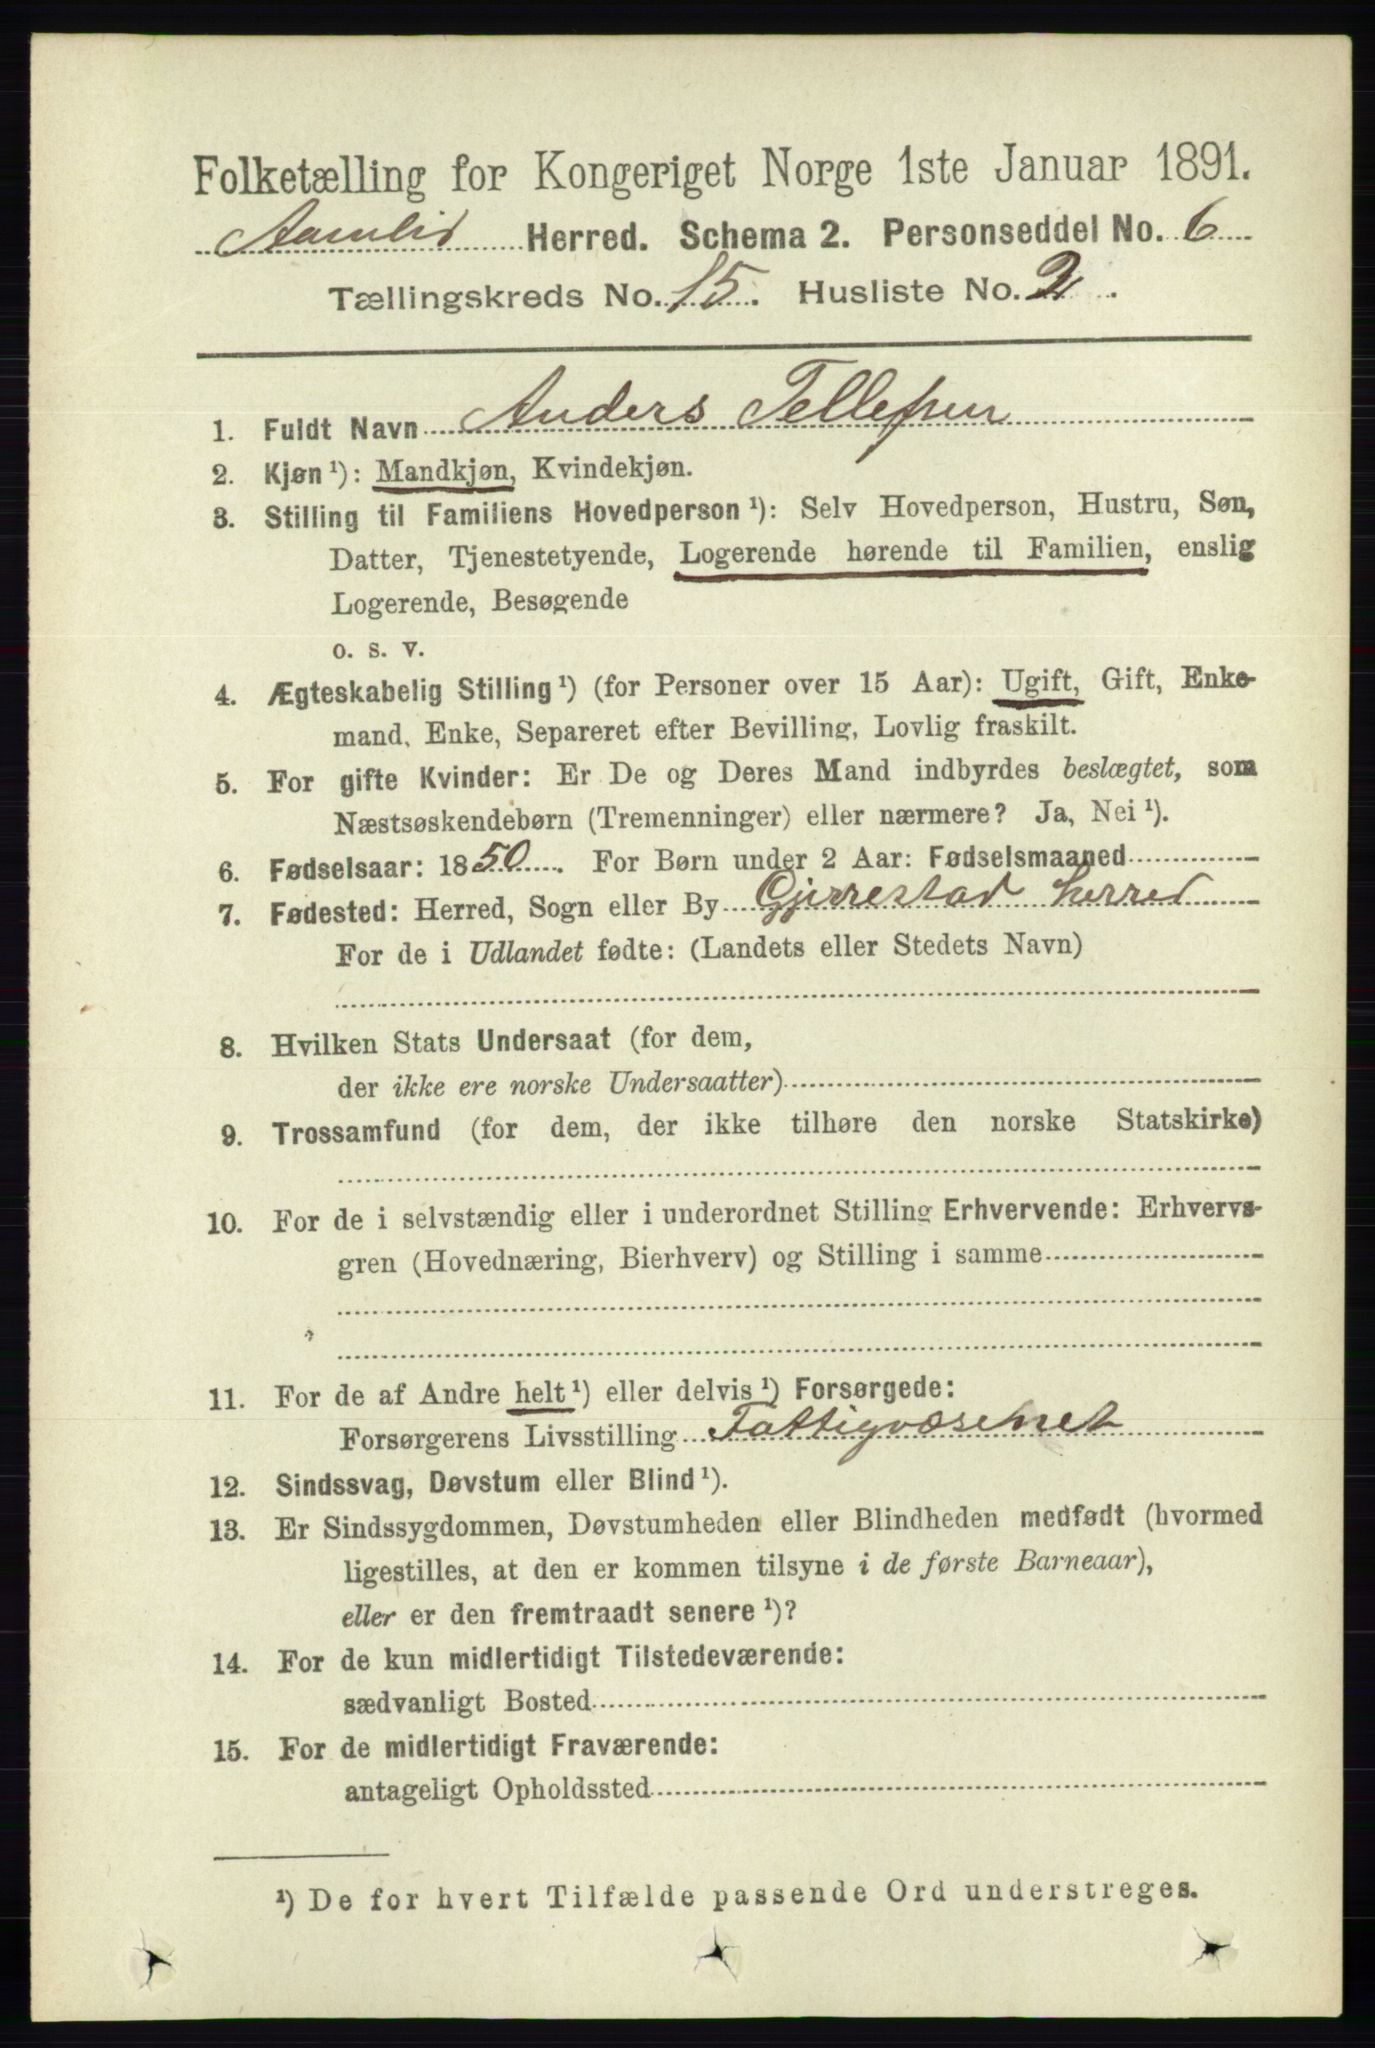 Folketælling for Kongeriget Norge 1ste Januar 1891.
Aamlid Herred. Schema 2. Personseddel No. 6
Tællingskreds No. 15. Husliste No. 2.
1. Fuldt Navn Anders Tellefsen
2. Kjøn ¹): Mandkjøn, Kvindekjøn.
3. Stilling til Familiens Hovedperson ¹): Selv Hovedperson, Hustru, Søn,
Datter, Tjenestetyende, Logerende hørende til Familien, enslig
Logerende, Besøgende
o. s. v.
4. Ægteskabelig Stilling ¹) (for Personer over 15 Aar): Ugift, Gift, Enke-
mand, Enke, Separeret efter Bevilling, Lovlig fraskilt.
5. For gifte Kvinder: Er De og Deres Mand indbyrdes beslægtet, som
Næstsøskendebørn (Tremenninger) eller nærmere? Ja, Nei ¹).
6. Fødselsaar: 1850. For Børn under 2 Aar: Fødselsmaaned
7. Fødested: Herred, Sogn eller By Gjerrestad herred
For de i Udlandet fødte: (Landets eller Stedets Navn)
8. Hvilken Stats Undersaat (for dem,
der ikke ere norske Undersaatter)
9. Trossamfund (for dem, der ikke tilhøre den norske Statskirke)
10. For de i selvstændig eller i underordnet Stilling Erhvervende: Erhvervs-
gren (Hovednæring, Bierhverv) og Stilling i samme
11. For de af Andre helt ¹) eller delvis ¹) Forsørgede:
Forsørgerens Livsstilling Fattigvæsenet
12. Sindssvag, Døvstum eller Blind ¹).
13. Er Sindssygdommen, Døvstumheden eller Blindheden medfødt (hvormed
ligestilles, at den er kommen tilsyne i de første Barneaar),
eller er den fremtraadt senere ¹)?
14. For de kun midlertidigt Tilstedeværende:
sædvanligt Bosted
15. For de midlertidigt Fraværende:
antageligt Opholdssted
¹) De for hvert Tilfælde passende Ord understreges.